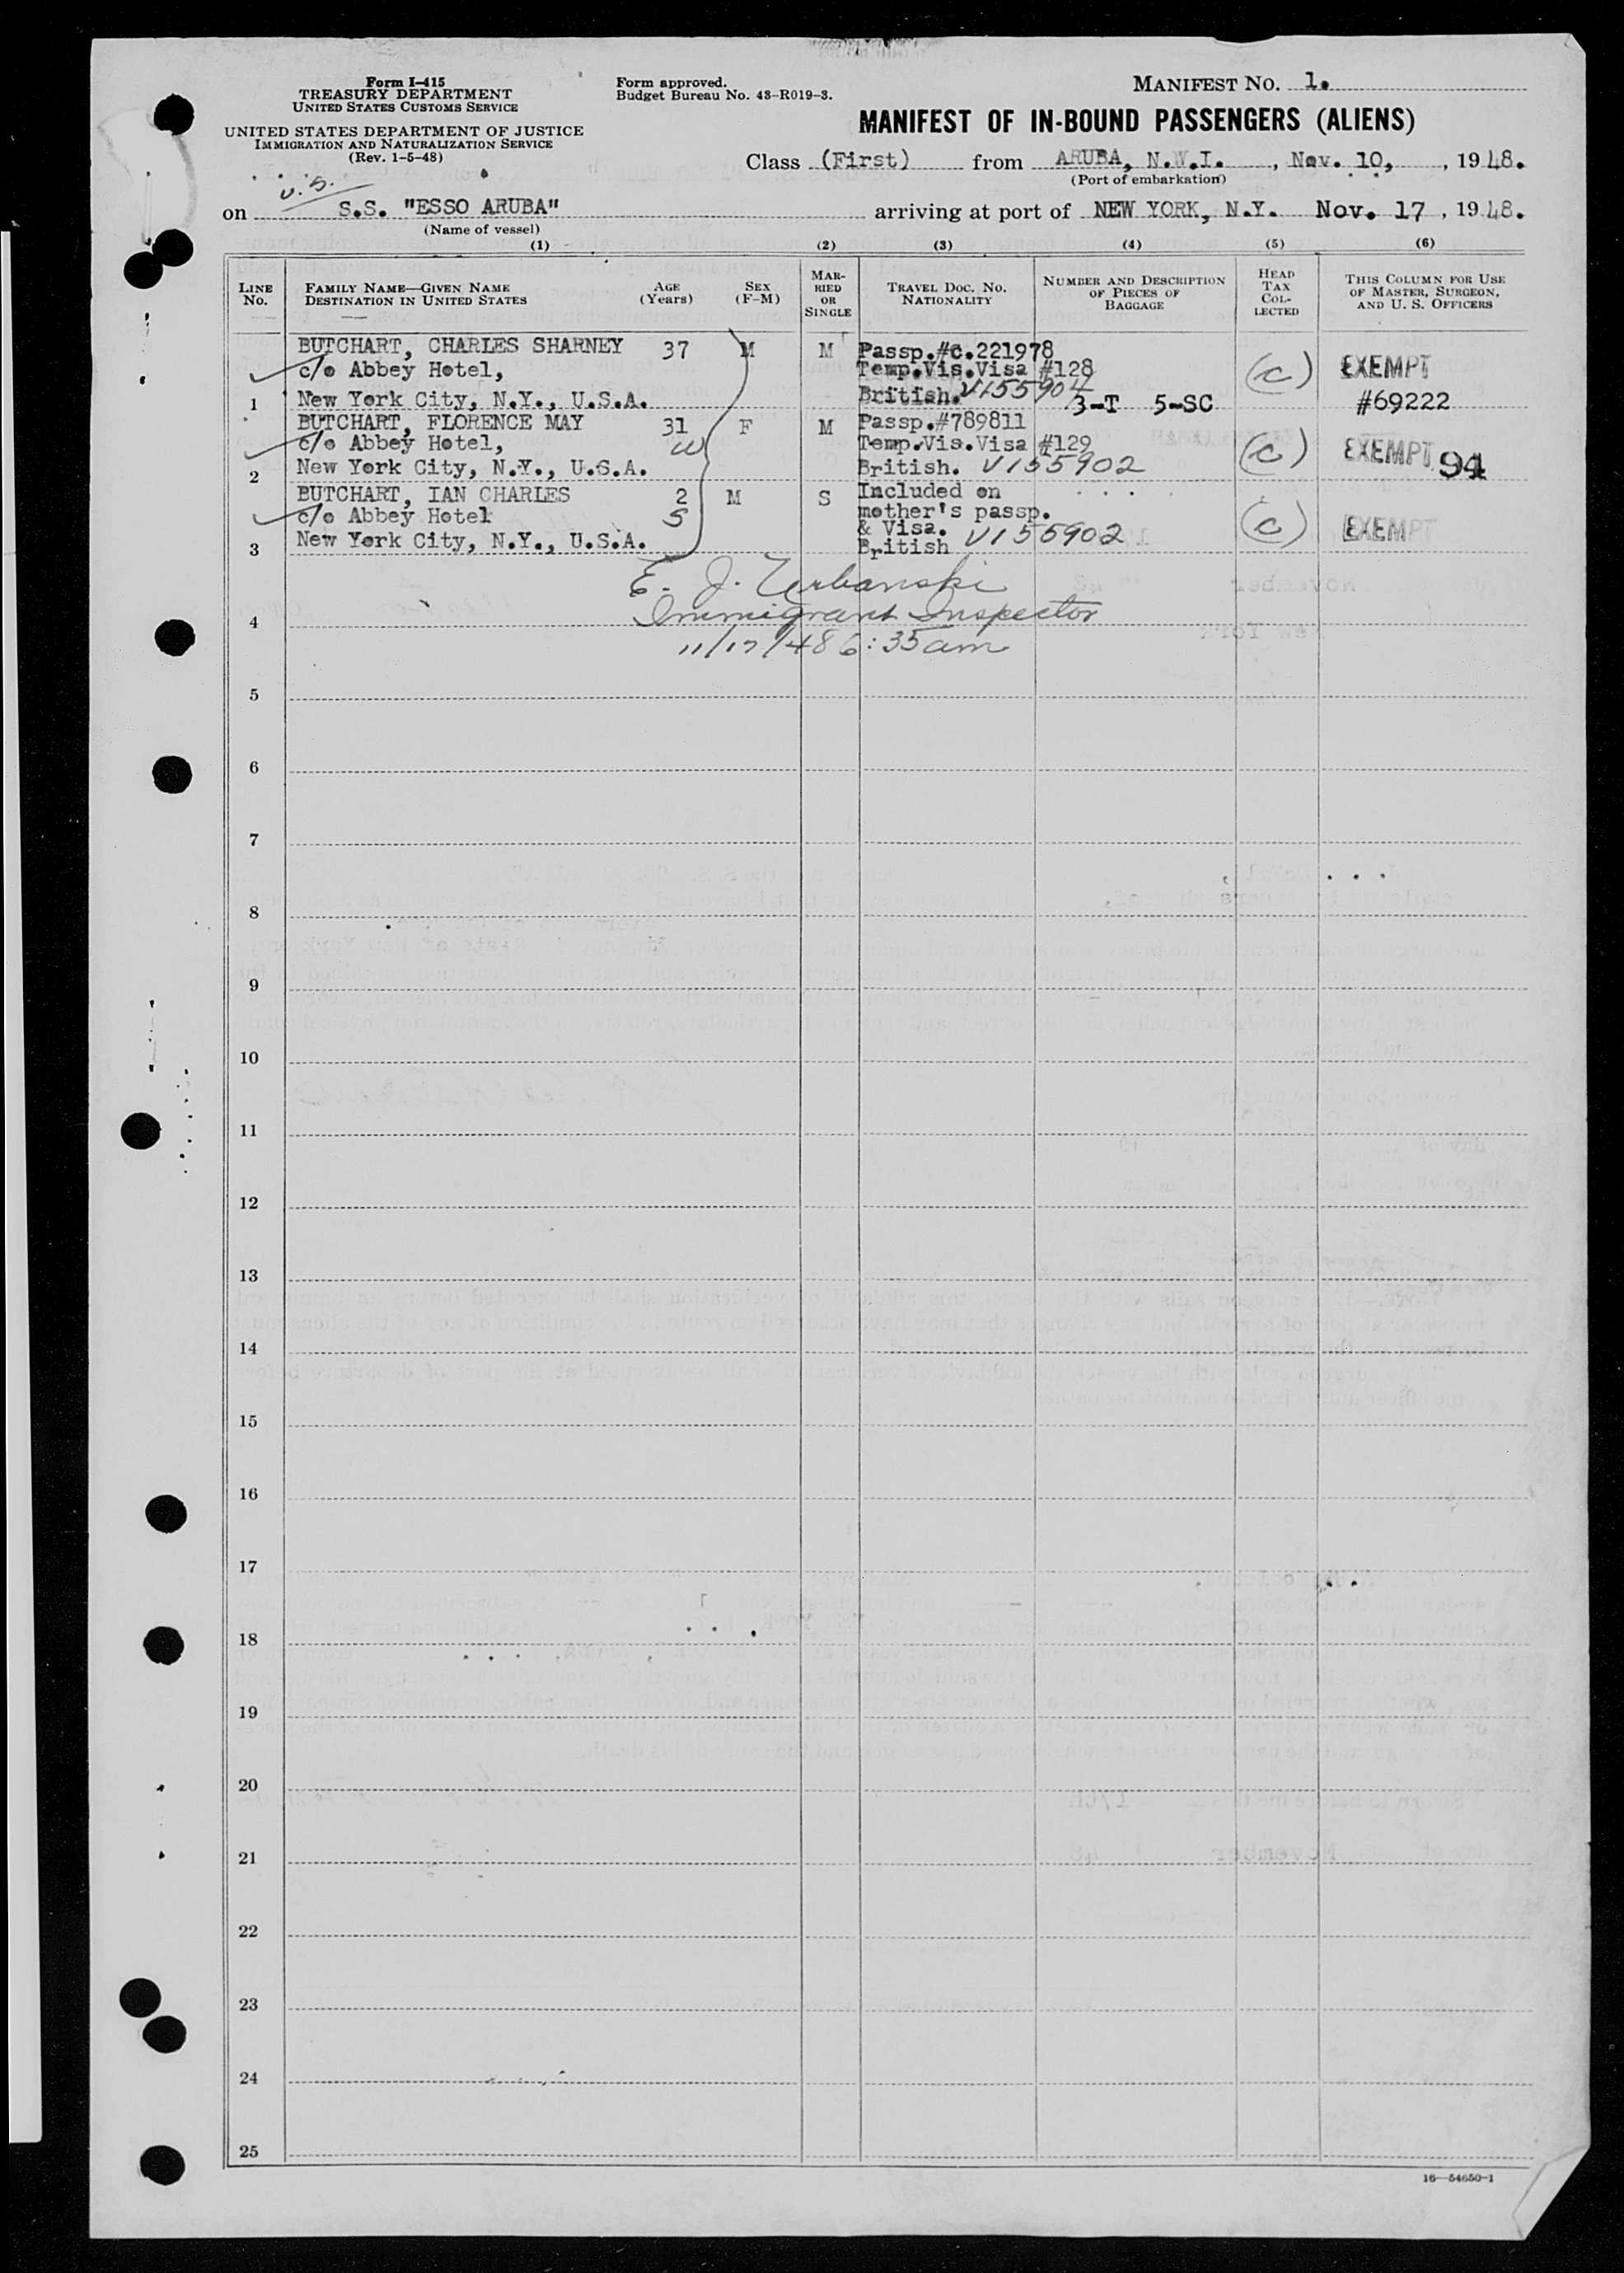 Form I-415
TREASURY DEPARTMENT
UNITED STATES CUSTOMS SERVICE
UNITED STATES DEPARTMENT OF JUSTICE
IMMIGRATION AND NATURALIZATION SERVICE
(Rev. 1-5-48)
Form approved.
Budget Bureau No. 43-R019-3.
MANIFEST No. 1.
MANIFEST OF IN-BOUND PASSENGERS (ALIENS)
Class (First) from ARUBA, N.W.I., Nov. 10, 1948.
(Port of embarkation)
on S.S. "ESSO ARUBA" arriving at port of NEW YORK, N.Y. Nov. 17, 1948.
(Name of vessel)
(1) (2) (3) (4) (5) (6)
LINE No.
FAMILY NAME—GIVEN NAME
DESTINATION IN UNITED STATES
AGE (Years)
SEX (F-M)
MARRIED OR SINGLE
TRAVEL DOC. No.
NATIONALITY
NUMBER AND DESCRIPTION OF PIECES OF BAGGAGE
HEAD TAX COLLECTED
THIS COLUMN FOR USE OF MASTER, SURGEON, AND U. S. OFFICERS
BUTCHART, CHARLES SHARNEY 37 M M Passp.#C.221978
c/o Abbey Hotel, Temp.Vis.Visa #128 (c) EXEMPT
1 New York City, N.Y., U.S.A. British. V155904 3-T 5-SC #69222
BUTCHART, FLORENCE MAY 31 F M Passp.#789811
c/o Abbey Hotel, W Temp.Vis.Visa #129 (c) EXEMPT 94
2 New York City, N.Y., U.S.A. British. V155902
BUTCHART, IAN CHARLES 2 M S Included on
c/o Abbey Hotel 5 mother's passp. (c) EXEM
& Visa.
3 New York City, N.Y., U.S.A. British V155902
E. J. Urbanski
4 Immigrant Inspector
11/17/48 6:35am
5
6
7
8
9
10
11
12
13
14
15
16
17
18
19
20
21
22
23
24
25
16—54650-1